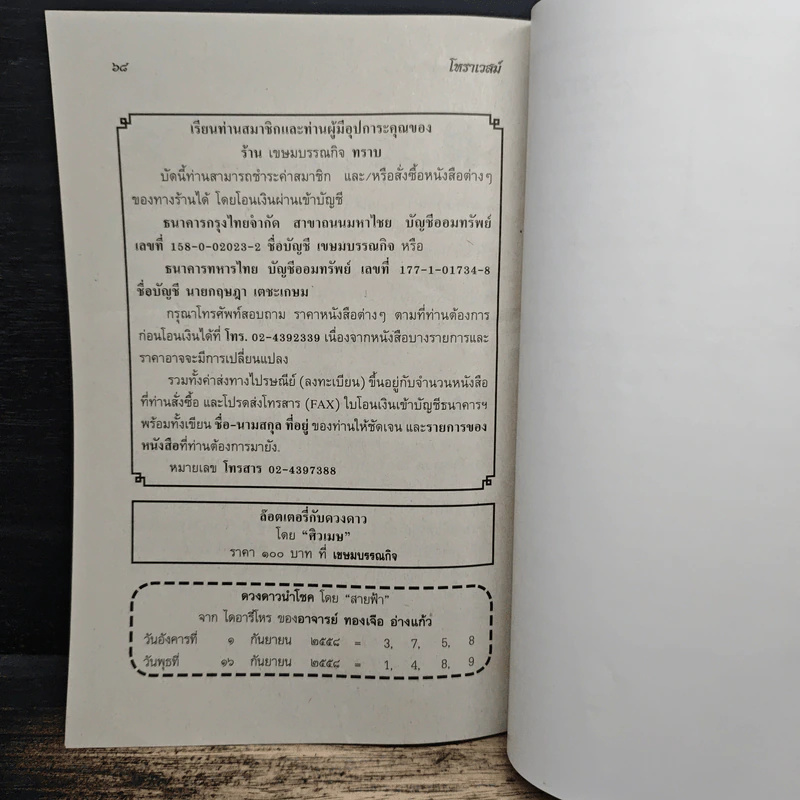 ๖๘
โหราเวสม์
เรียนท่านสมาชิกและท่านผู้มีอุปการะคุณของ
ร้าน เขษมบรรณกิจ ทราบ
บัดนี้ท่านสามารถชำระค่าสมาชิก และ/หรือสั่งซื้อหนังสือต่างๆ
ของทางร้านได้ โดยโอนเงินผ่านเข้าบัญชี
ธนาคารกรุงไทยจำกัด สาขาถนนมหาไชย บัญชีออมทรัพย์
เลขที่ 158-0-02023-2 ชื่อบัญชี เขษมบรรณกิจ หรือ
ธนาคารทหารไทย บัญชีออมทรัพย์ เลขที่ 177-1-01734-8
ชื่อบัญชี นายกฤษฎา เตชะเกษม
กรุณาโทรศัพท์สอบถาม ราคาหนังสือต่างๆ ตามที่ท่านต้องการ
ก่อนโอนเงินได้ที่ โทร. 02-4392339 เนื่องจากหนังสือบางรายการและ
ราคาอาจจะมีการเปลี่ยนแปลง
รวมทั้งค่าส่งทางไปรษณีย์ (ลงทะเบียน) ขึ้นอยู่กับจำนวนหนังสือ
ที่ท่านสั่งซื้อ และโปรดส่งโทรสาร (FAX) ใบโอนเงินเข้าบัญชีธนาคารฯ
พร้อมทั้งเขียน ชื่อ-นามสกุล ที่อยู่ ของท่านให้ชัดเจน และรายการของ
หนังสือที่ท่านต้องการมายัง.
หมายเลข โทรสาร 02-4397388
ล๊อตเตอรี่กับดวงดาว
โดย “ศิวเมษ”
ราคา ๑๐๐ บาท ที่ เขษมบรรณกิจ
ดวงดาวนำโชค โดย “สายฟ้า”
จาก ไดอารี่โหร ของอาจารย์ ทองเจือ อ่างแก้ว
วันอังคารที่ ๑ กันยายน ๒๕๕๘ = 3, 7, 5, 8
วันพุธที่ ๑๖ กันยายน ๒๕๕๘ = 1, 4, 8, 9